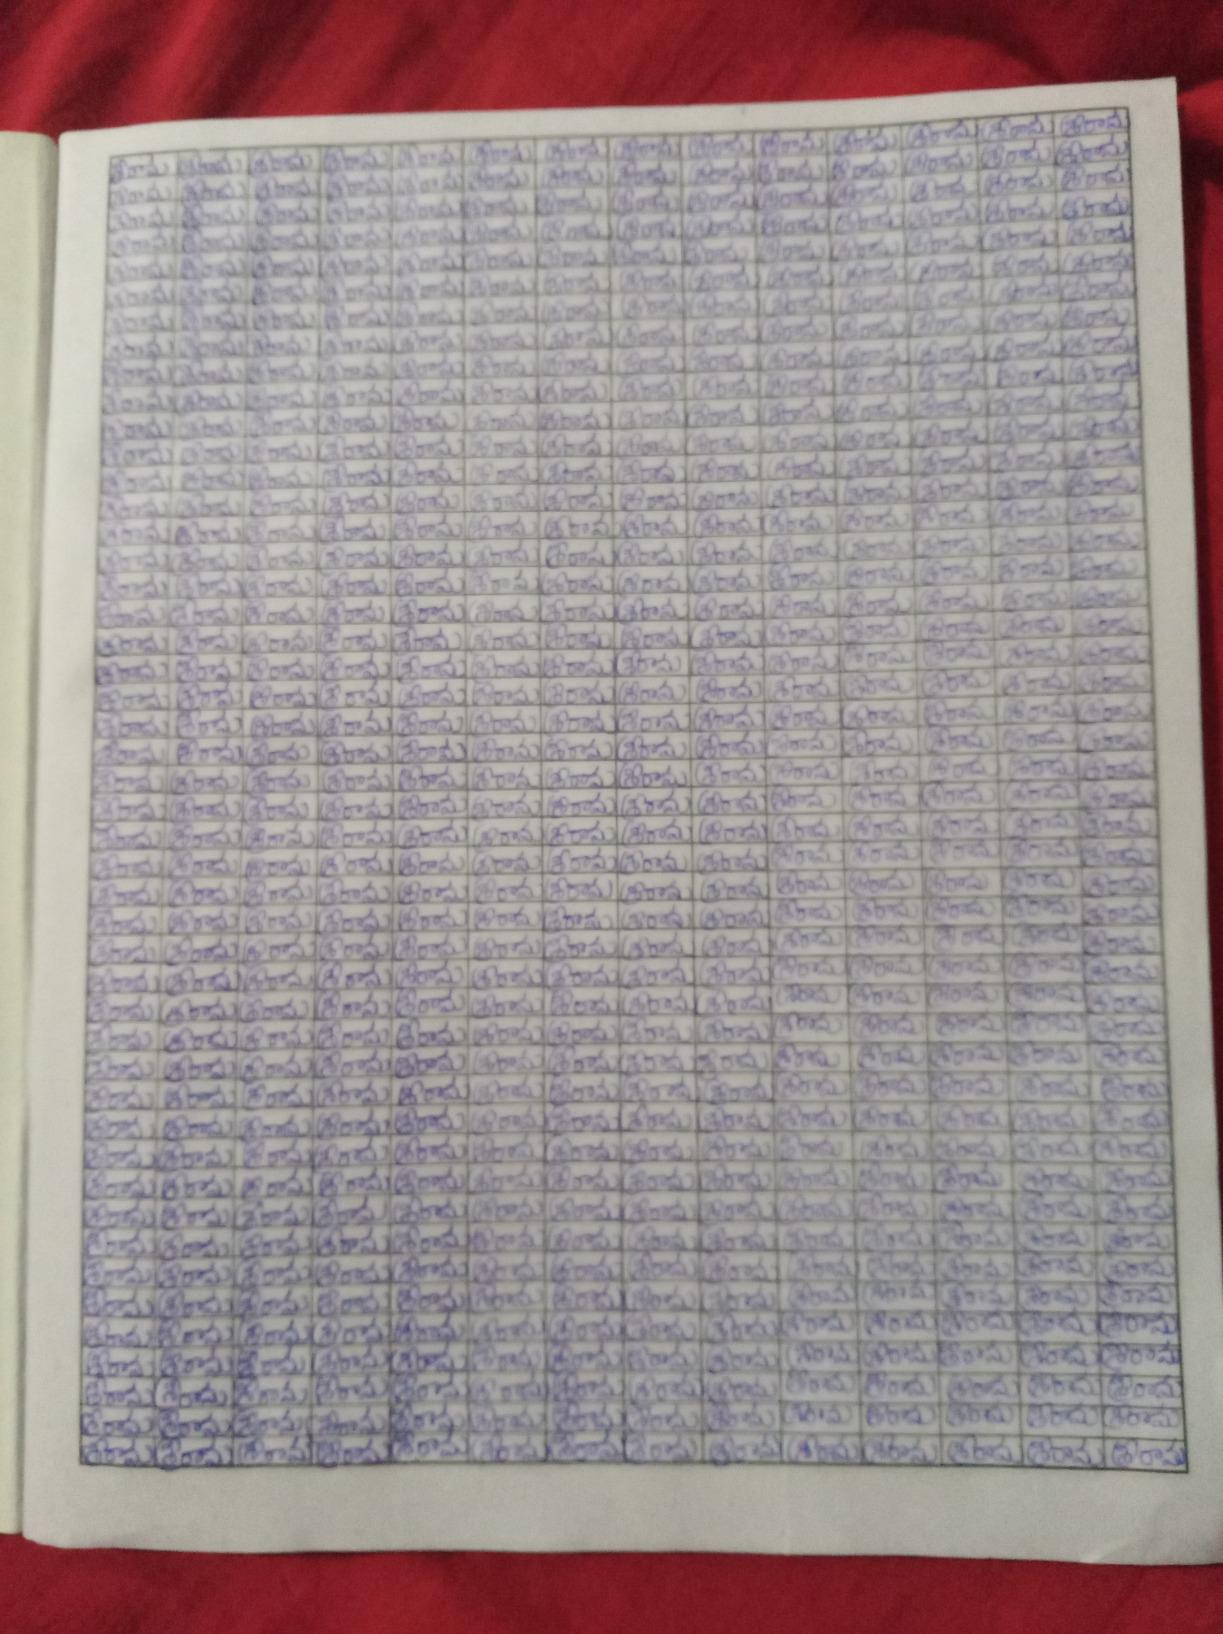 శ్రీరామ శ్రీరామ శ్రీరామ శ్రీరామ శ్రీరామ శ్రీరామ శ్రీరామ శ్రీరామ శ్రీరామ శ్రీరామ శ్రీరామ శ్రీరామ శ్రీరామ శ్రీరామ
శ్రీరామ శ్రీరామ శ్రీరామ శ్రీరామ శ్రీరామ శ్రీరామ శ్రీరామ శ్రీరామ శ్రీరామ శ్రీరామ శ్రీరామ శ్రీరామ శ్రీరామ శ్రీరామ
శ్రీరామ శ్రీరామ శ్రీరామ శ్రీరామ శ్రీరామ శ్రీరామ శ్రీరామ శ్రీరామ శ్రీరామ శ్రీరామ శ్రీరామ శ్రీరామ శ్రీరామ శ్రీరామ
శ్రీరామ శ్రీరామ శ్రీరామ శ్రీరామ శ్రీరామ శ్రీరామ శ్రీరామ శ్రీరామ శ్రీరామ శ్రీరామ శ్రీరామ శ్రీరామ శ్రీరామ శ్రీరామ
శ్రీరామ శ్రీరామ శ్రీరామ శ్రీరామ శ్రీరామ శ్రీరామ శ్రీరామ శ్రీరామ శ్రీరామ శ్రీరామ శ్రీరామ శ్రీరామ శ్రీరామ శ్రీరామ
శ్రీరామ శ్రీరామ శ్రీరామ శ్రీరామ శ్రీరామ శ్రీరామ శ్రీరామ శ్రీరామ శ్రీరామ శ్రీరామ శ్రీరామ శ్రీరామ శ్రీరామ శ్రీరామ
శ్రీరామ శ్రీరామ శ్రీరామ శ్రీరామ శ్రీరామ శ్రీరామ శ్రీరామ శ్రీరామ శ్రీరామ శ్రీరామ శ్రీరామ శ్రీరామ శ్రీరామ శ్రీరామ
శ్రీరామ శ్రీరామ శ్రీరామ శ్రీరామ శ్రీరామ శ్రీరామ శ్రీరామ శ్రీరామ శ్రీరామ శ్రీరామ శ్రీరామ శ్రీరామ శ్రీరామ శ్రీరామ
శ్రీరామ శ్రీరామ శ్రీరామ శ్రీరామ శ్రీరామ శ్రీరామ శ్రీరామ శ్రీరామ శ్రీరామ శ్రీరామ శ్రీరామ శ్రీరామ శ్రీరామ శ్రీరామ
శ్రీరామ శ్రీరామ శ్రీరామ శ్రీరామ శ్రీరామ శ్రీరామ శ్రీరామ శ్రీరామ శ్రీరామ శ్రీరామ శ్రీరామ శ్రీరామ శ్రీరామ శ్రీరామ
శ్రీరామ శ్రీరామ శ్రీరామ శ్రీరామ శ్రీరామ శ్రీరామ శ్రీరామ శ్రీరామ శ్రీరామ శ్రీరామ శ్రీరామ శ్రీరామ శ్రీరామ శ్రీరామ
శ్రీరామ శ్రీరామ శ్రీరామ శ్రీరామ శ్రీరామ శ్రీరామ శ్రీరామ శ్రీరామ శ్రీరామ శ్రీరామ శ్రీరామ శ్రీరామ శ్రీరామ శ్రీరామ
శ్రీరామ శ్రీరామ శ్రీరామ శ్రీరామ శ్రీరామ శ్రీరామ శ్రీరామ శ్రీరామ శ్రీరామ శ్రీరామ శ్రీరామ శ్రీరామ శ్రీరామ శ్రీరామ
శ్రీరామ శ్రీరామ శ్రీరామ శ్రీరామ శ్రీరామ శ్రీరామ శ్రీరామ శ్రీరామ శ్రీరామ శ్రీరామ శ్రీరామ శ్రీరామ శ్రీరామ శ్రీరామ
శ్రీరామ శ్రీరామ శ్రీరామ శ్రీరామ శ్రీరామ శ్రీరామ శ్రీరామ శ్రీరామ శ్రీరామ శ్రీరామ శ్రీరామ శ్రీరామ శ్రీరామ శ్రీరామ
శ్రీరామ శ్రీరామ శ్రీరామ శ్రీరామ శ్రీరామ శ్రీరామ శ్రీరామ శ్రీరామ శ్రీరామ శ్రీరామ శ్రీరామ శ్రీరామ శ్రీరామ శ్రీరామ
శ్రీరామ శ్రీరామ శ్రీరామ శ్రీరామ శ్రీరామ శ్రీరామ శ్రీరామ శ్రీరామ శ్రీరామ శ్రీరామ శ్రీరామ శ్రీరామ శ్రీరామ శ్రీరామ
శ్రీరామ శ్రీరామ శ్రీరామ శ్రీరామ శ్రీరామ శ్రీరామ శ్రీరామ శ్రీరామ శ్రీరామ శ్రీరామ శ్రీరామ శ్రీరామ శ్రీరామ శ్రీరామ
శ్రీరామ శ్రీరామ శ్రీరామ శ్రీరామ శ్రీరామ శ్రీరామ శ్రీరామ శ్రీరామ శ్రీరామ శ్రీరామ శ్రీరామ శ్రీరామ శ్రీరామ శ్రీరామ
శ్రీరామ శ్రీరామ శ్రీరామ శ్రీరామ శ్రీరామ శ్రీరామ శ్రీరామ శ్రీరామ శ్రీరామ శ్రీరామ శ్రీరామ శ్రీరామ శ్రీరామ శ్రీరామ
శ్రీరామ శ్రీరామ శ్రీరామ శ్రీరామ శ్రీరామ శ్రీరామ శ్రీరామ శ్రీరామ శ్రీరామ శ్రీరామ శ్రీరామ శ్రీరామ శ్రీరామ శ్రీరామ
శ్రీరామ శ్రీరామ శ్రీరామ శ్రీరామ శ్రీరామ శ్రీరామ శ్రీరామ శ్రీరామ శ్రీరామ శ్రీరామ శ్రీరామ శ్రీరామ శ్రీరామ శ్రీరామ
శ్రీరామ శ్రీరామ శ్రీరామ శ్రీరామ శ్రీరామ శ్రీరామ శ్రీరామ శ్రీరామ శ్రీరామ శ్రీరామ శ్రీరామ శ్రీరామ శ్రీరామ శ్రీరామ
శ్రీరామ శ్రీరామ శ్రీరామ శ్రీరామ శ్రీరామ శ్రీరామ శ్రీరామ శ్రీరామ శ్రీరామ శ్రీరామ శ్రీరామ శ్రీరామ శ్రీరామ శ్రీరామ
శ్రీరామ శ్రీరామ శ్రీరామ శ్రీరామ శ్రీరామ శ్రీరామ శ్రీరామ శ్రీరామ శ్రీరామ శ్రీరామ శ్రీరామ శ్రీరామ శ్రీరామ శ్రీరామ
శ్రీరామ శ్రీరామ శ్రీరామ శ్రీరామ శ్రీరామ శ్రీరామ శ్రీరామ శ్రీరామ శ్రీరామ శ్రీరామ శ్రీరామ శ్రీరామ శ్రీరామ శ్రీరామ
శ్రీరామ శ్రీరామ శ్రీరామ శ్రీరామ శ్రీరామ శ్రీరామ శ్రీరామ శ్రీరామ శ్రీరామ శ్రీరామ శ్రీరామ శ్రీరామ శ్రీరామ శ్రీరామ
శ్రీరామ శ్రీరామ శ్రీరామ శ్రీరామ శ్రీరామ శ్రీరామ శ్రీరామ శ్రీరామ శ్రీరామ శ్రీరామ శ్రీరామ శ్రీరామ శ్రీరామ శ్రీరామ
శ్రీరామ శ్రీరామ శ్రీరామ శ్రీరామ శ్రీరామ శ్రీరామ శ్రీరామ శ్రీరామ శ్రీరామ శ్రీరామ శ్రీరామ శ్రీరామ శ్రీరామ శ్రీరామ
శ్రీరామ శ్రీరామ శ్రీరామ శ్రీరామ శ్రీరామ శ్రీరామ శ్రీరామ శ్రీరామ శ్రీరామ శ్రీరామ శ్రీరామ శ్రీరామ శ్రీరామ శ్రీరామ
శ్రీరామ శ్రీరామ శ్రీరామ శ్రీరామ శ్రీరామ శ్రీరామ శ్రీరామ శ్రీరామ శ్రీరామ శ్రీరామ శ్రీరామ శ్రీరామ శ్రీరామ శ్రీరామ
శ్రీరామ శ్రీరామ శ్రీరామ శ్రీరామ శ్రీరామ శ్రీరామ శ్రీరామ శ్రీరామ శ్రీరామ శ్రీరామ శ్రీరామ శ్రీరామ శ్రీరామ శ్రీరామ
శ్రీరామ శ్రీరామ శ్రీరామ శ్రీరామ శ్రీరామ శ్రీరామ శ్రీరామ శ్రీరామ శ్రీరామ శ్రీరామ శ్రీరామ శ్రీరామ శ్రీరామ శ్రీరామ
శ్రీరామ శ్రీరామ శ్రీరామ శ్రీరామ శ్రీరామ శ్రీరామ శ్రీరామ శ్రీరామ శ్రీరామ శ్రీరామ శ్రీరామ శ్రీరామ శ్రీరామ శ్రీరామ
శ్రీరామ శ్రీరామ శ్రీరామ శ్రీరామ శ్రీరామ శ్రీరామ శ్రీరామ శ్రీరామ శ్రీరామ శ్రీరామ శ్రీరామ శ్రీరామ శ్రీరామ శ్రీరామ
శ్రీరామ శ్రీరామ శ్రీరామ శ్రీరామ శ్రీరామ శ్రీరామ శ్రీరామ శ్రీరామ శ్రీరామ శ్రీరామ శ్రీరామ శ్రీరామ శ్రీరామ శ్రీరామ
శ్రీరామ శ్రీరామ శ్రీరామ శ్రీరామ శ్రీరామ శ్రీరామ శ్రీరామ శ్రీరామ శ్రీరామ శ్రీరామ శ్రీరామ శ్రీరామ శ్రీరామ శ్రీరామ
శ్రీరామ శ్రీరామ శ్రీరామ శ్రీరామ శ్రీరామ శ్రీరామ శ్రీరామ శ్రీరామ శ్రీరామ శ్రీరామ శ్రీరామ శ్రీరామ శ్రీరామ శ్రీరామ
శ్రీరామ శ్రీరామ శ్రీరామ శ్రీరామ శ్రీరామ శ్రీరామ శ్రీరామ శ్రీరామ శ్రీరామ శ్రీరామ శ్రీరామ శ్రీరామ శ్రీరామ శ్రీరామ
శ్రీరామ శ్రీరామ శ్రీరామ శ్రీరామ శ్రీరామ శ్రీరామ శ్రీరామ శ్రీరామ శ్రీరామ శ్రీరామ శ్రీరామ శ్రీరామ శ్రీరామ శ్రీరామ
శ్రీరామ శ్రీరామ శ్రీరామ శ్రీరామ శ్రీరామ శ్రీరామ శ్రీరామ శ్రీరామ శ్రీరామ శ్రీరామ శ్రీరామ శ్రీరామ శ్రీరామ శ్రీరామ
శ్రీరామ శ్రీరామ శ్రీరామ శ్రీరామ శ్రీరామ శ్రీరామ శ్రీరామ శ్రీరామ శ్రీరామ శ్రీరామ శ్రీరామ శ్రీరామ శ్రీరామ శ్రీరామ
శ్రీరామ శ్రీరామ శ్రీరామ శ్రీరామ శ్రీరామ శ్రీరామ శ్రీరామ శ్రీరామ శ్రీరామ శ్రీరామ శ్రీరామ శ్రీరామ శ్రీరామ శ్రీరామ
శ్రీరామ శ్రీరామ శ్రీరామ శ్రీరామ శ్రీరామ శ్రీరామ శ్రీరామ శ్రీరామ శ్రీరామ శ్రీరామ శ్రీరామ శ్రీరామ శ్రీరామ శ్రీరామ
శ్రీరామ శ్రీరామ శ్రీరామ శ్రీరామ శ్రీరామ శ్రీరామ శ్రీరామ శ్రీరామ శ్రీరామ శ్రీరామ శ్రీరామ శ్రీరామ శ్రీరామ శ్రీరామ
శ్రీరామ శ్రీరామ శ్రీరామ శ్రీరామ శ్రీరామ శ్రీరామ శ్రీరామ శ్రీరామ శ్రీరామ శ్రీరామ శ్రీరామ శ్రీరామ శ్రీరామ శ్రీరామ
శ్రీరామ శ్రీరామ శ్రీరామ శ్రీరామ శ్రీరామ శ్రీరామ శ్రీరామ శ్రీరామ శ్రీరామ శ్రీరామ శ్రీరామ శ్రీరామ శ్రీరామ శ్రీరామ